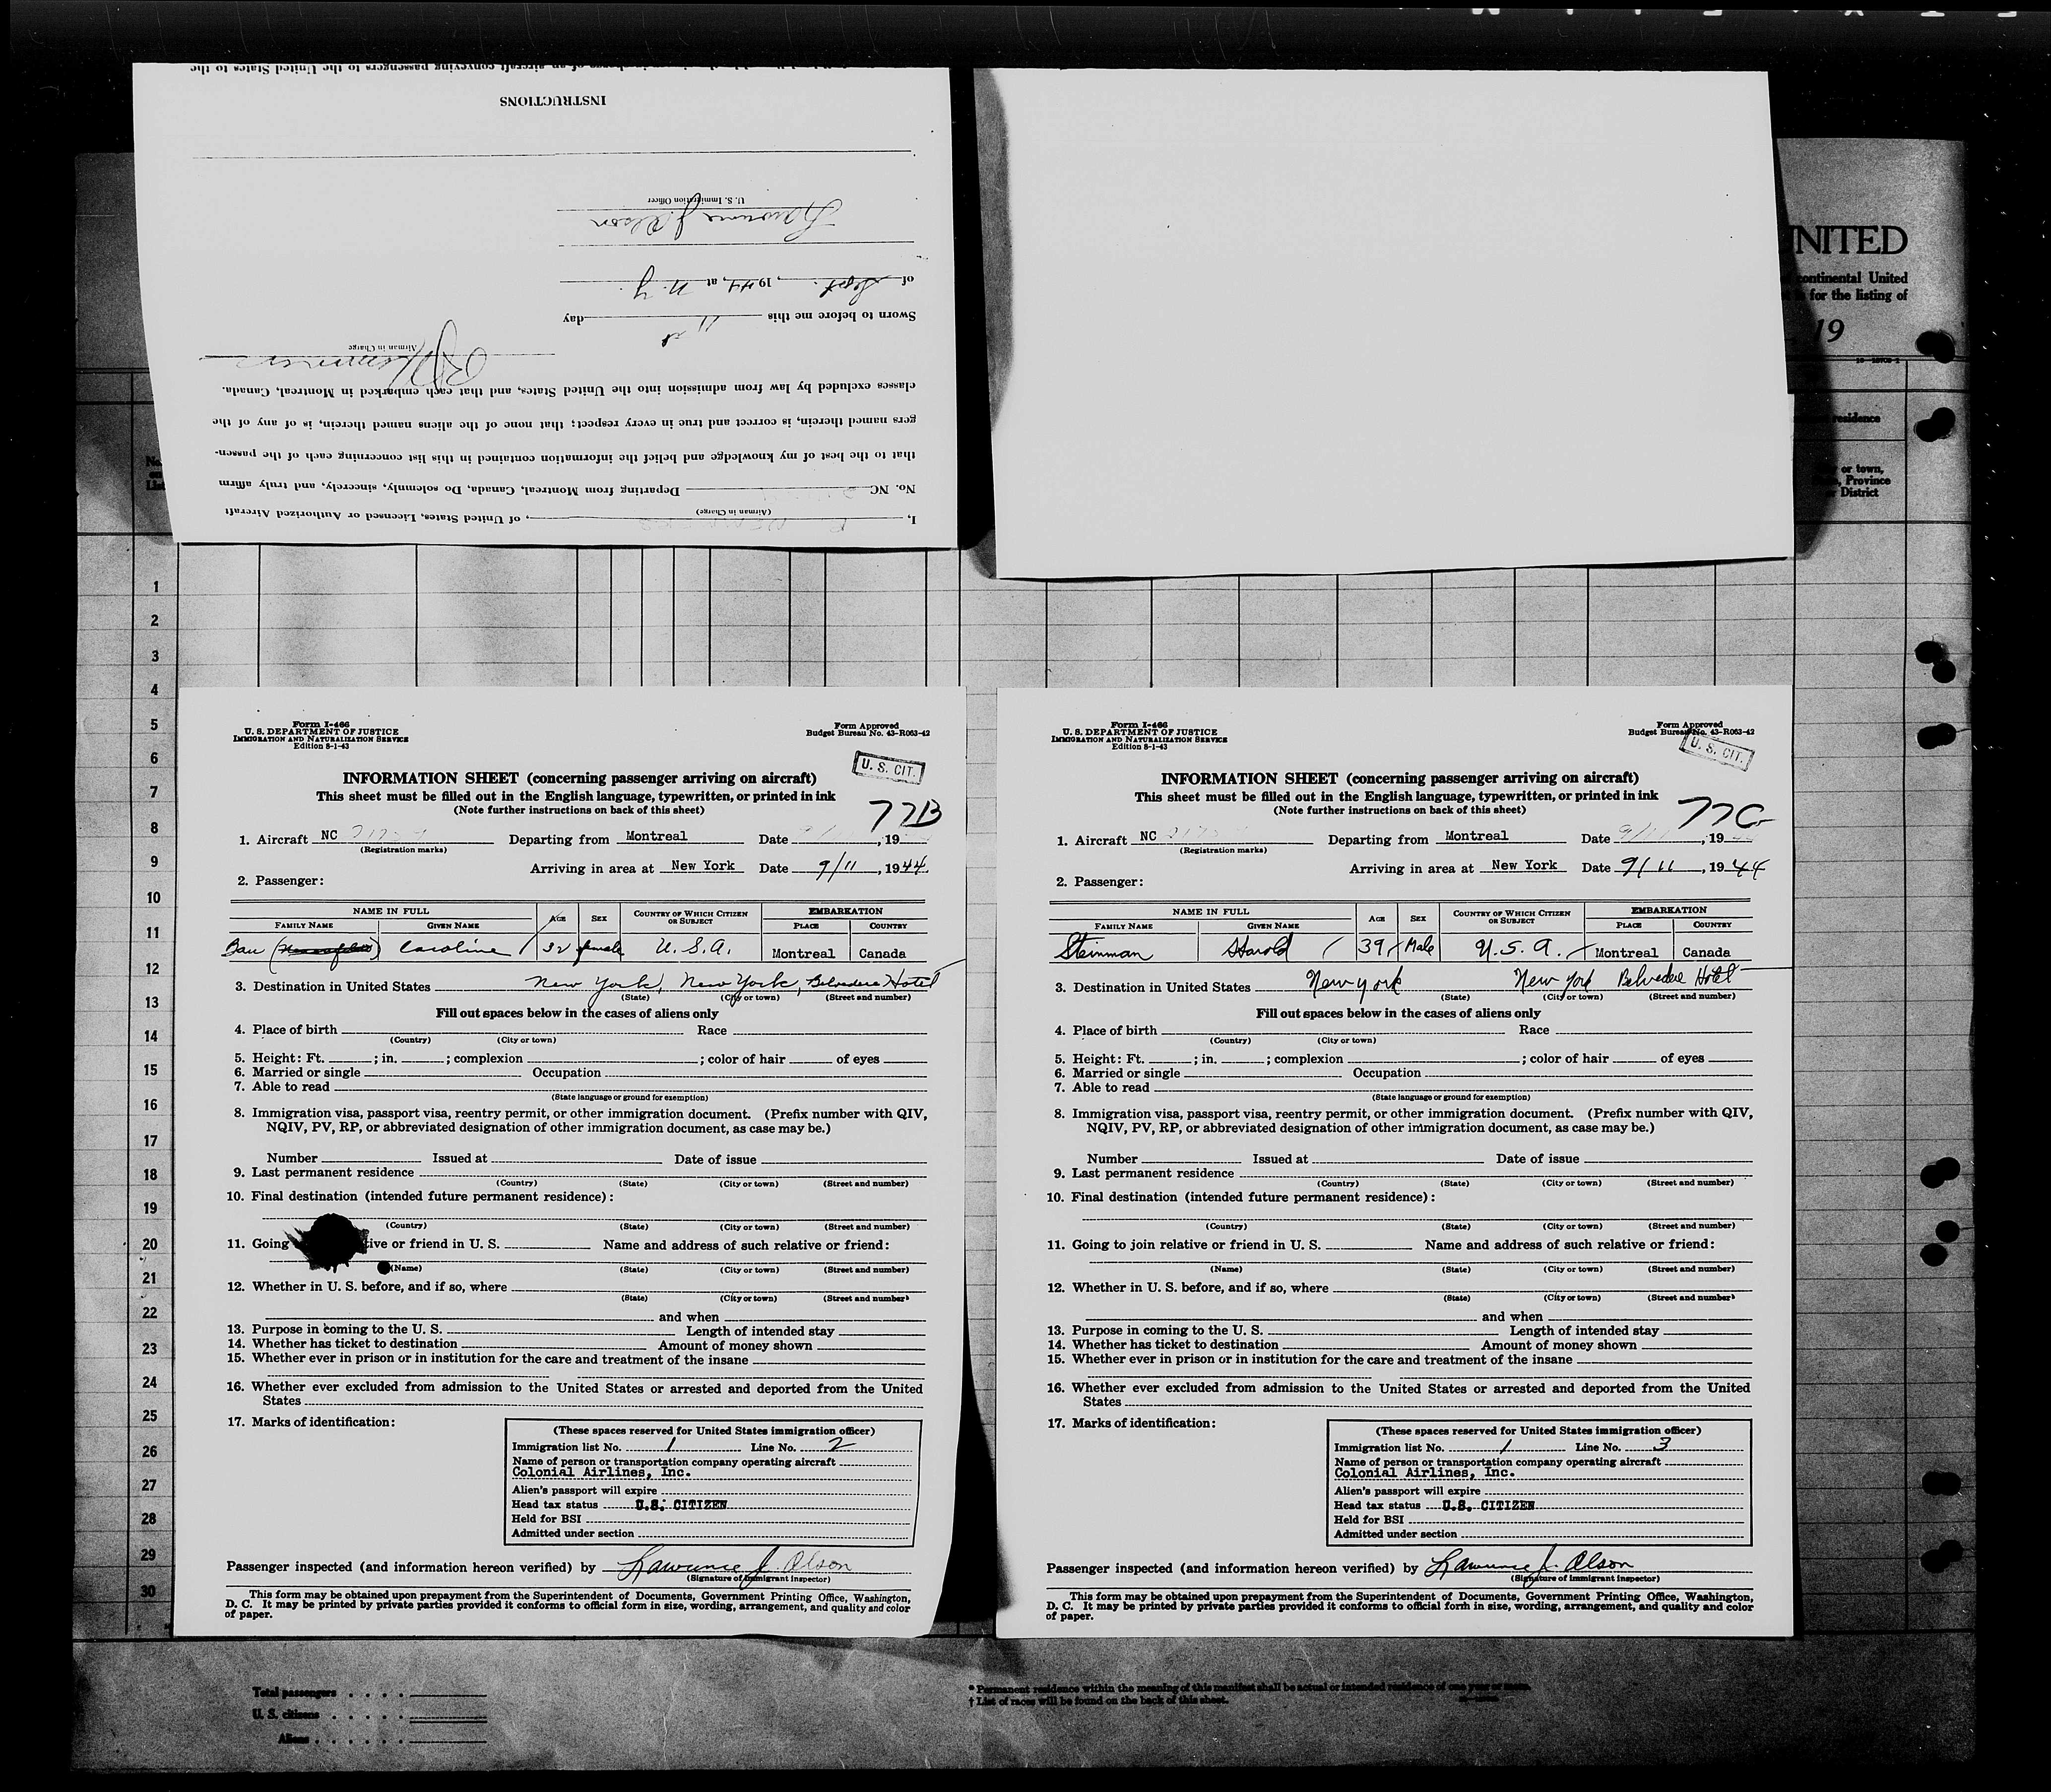 INSTRUCTIONS
U. S. Immigration Officer
Lawrence J. Olson
of Sept., 1944, at N. Y.
Sworn to before me this 11 day
Airman in Charge
classes excluded by law from admission into the United States, and that each embarked in Montreal, Canada.
gers named therein, is correct and true in every respect; that none of the aliens named therein, is of any of the
that to the best of my knowledge and belief the information contained in this list concerning each of the passen-
No. NC Departing from Montreal, Canada, Do solemnly, sincerely, and truly affirm
(Airman in Charge)
I, , of United States, Licensed or Authorized Aircraft
NITED
continental United
for the listing of
19
residence
or town,
Province
or District
No.
on
List
1
2
3
4
5
6
7
8
9
10
11
12
13
14
15
16
17
18
19
20
21
22
23
24
25
26
27
28
29
30
Form I-466
U. S. DEPARTMENT OF JUSTICE
IMMIGRATION AND NATURALIZATION SERVICE
Edition 8-1-43
Form Approved
Budget Bureau No. 43-R063-42
U. S. CIT.
INFORMATION SHEET (concerning passenger arriving on aircraft)
This sheet must be filled out in the English language, typewritten, or printed in ink
(Note further instructions on back of this sheet)
77B
1. Aircraft NC Departing from Montreal Date , 19
(Registration marks)
Arriving in area at New York Date 9/11, 1944.
2. Passenger:
NAME IN FULL AGE SEX COUNTRY OF WHICH CITIZEN OR SUBJECT EMBARKATION
FAMILY NAME GIVEN NAME PLACE COUNTRY
Caroline 32 female U. S. A. Montreal Canada
3. Destination in United States New York, New York, Belvedere Hotel
(State) (City or town) (Street and number)
Fill out spaces below in the cases of aliens only
4. Place of birth Race
(Country) (City or town)
5. Height: Ft. ; in. ; complexion ; color of hair of eyes
6. Married or single Occupation
7. Able to read
(State language or ground for exemption)
8. Immigration visa, passport visa, reentry permit, or other immigration document. (Prefix number with QIV,
NQIV, PV, RP, or abbreviated designation of other immigration document, as case may be.)
Number Issued at Date of issue
9. Last permanent residence
(Country) (State) (City or town) (Street and number)
10. Final destination (intended future permanent residence):
(Country) (State) (City or town) (Street and number)
11. Going tive or friend in U. S. Name and address of such relative or friend:
(Name) (State) (City or town) (Street and number)
12. Whether in U. S. before, and if so, where
(State) (City or town) (Street and number)
and when
13. Purpose in coming to the U. S. Length of intended stay
14. Whether has ticket to destination Amount of money shown
15. Whether ever in prison or in institution for the care and treatment of the insane
16. Whether ever excluded from admission to the United States or arrested and deported from the United
States
17. Marks of identification:
(These spaces reserved for United States immigration officer)
Immigration list No. 1 Line No. 2
Name of person or transportation company operating aircraft
Colonial Airlines, Inc.
Alien's passport will expire
Head tax status U.S. CITIZEN
Held for BSI
Admitted under section
Passenger inspected (and information hereon verified) by Lawrence J. Olson
(Signature of Immigrant Inspector)
This form may be obtained upon prepayment from the Superintendent of Documents, Government Printing Office, Washington,
D. C. It may be printed by private parties provided it conforms to official form in size, wording, arrangement, and quality and color
of paper.
Form I-466
U. S. DEPARTMENT OF JUSTICE
IMMIGRATION AND NATURALIZATION SERVICE
Edition 8-1-43
Form Approved
Budget Bureau No. 43-R063-42
U. S. CIT.
INFORMATION SHEET (concerning passenger arriving on aircraft)
This sheet must be filled out in the English language, typewritten, or printed in ink
(Note further instructions on back of this sheet)
77C
1. Aircraft NC Departing from Montreal Date 9/11, 19
(Registration marks)
Arriving in area at New York Date 9/11, 1944
2. Passenger:
NAME IN FULL AGE SEX COUNTRY OF WHICH CITIZEN OR SUBJECT EMBARKATION
FAMILY NAME GIVEN NAME PLACE COUNTRY
Steinman Harold 39 Male U. S. A. Montreal Canada
3. Destination in United States New York New York Belvedere Hotel
(State) (City or town) (Street and number)
Fill out spaces below in the cases of aliens only
4. Place of birth Race
(Country) (City or town)
5. Height: Ft. ; in. ; complexion ; color of hair of eyes
6. Married or single Occupation
7. Able to read
(State language or ground for exemption)
8. Immigration visa, passport visa, reentry permit, or other immigration document. (Prefix number with QIV,
NQIV, PV, RP, or abbreviated designation of other immigration document, as case may be.)
Number Issued at Date of issue
9. Last permanent residence
(Country) (State) (City or town) (Street and number)
10. Final destination (intended future permanent residence):
(Country) (State) (City or town) (Street and number)
11. Going to join relative or friend in U. S. Name and address of such relative or friend:
(Name) (State) (City or town) (Street and number)
12. Whether in U. S. before, and if so, where
(State) (City or town) (Street and number)
and when
13. Purpose in coming to the U. S. Length of intended stay
14. Whether has ticket to destination Amount of money shown
15. Whether ever in prison or in institution for the care and treatment of the insane
16. Whether ever excluded from admission to the United States or arrested and deported from the United
States
17. Marks of identification:
(These spaces reserved for United States immigration officer)
Immigration list No. 1 Line No. 3
Name of person or transportation company operating aircraft
Colonial Airlines, Inc.
Alien's passport will expire
Head tax status U.S. CITIZEN
Held for BSI
Admitted under section
Passenger inspected (and information hereon verified) by Lawrence J. Olson
(Signature of Immigrant Inspector)
This form may be obtained upon prepayment from the Superintendent of Documents, Government Printing Office, Washington,
D. C. It may be printed by private parties provided it conforms to official form in size, wording, arrangement, and quality and color
of paper.
Total passengers
U. S. citizens
Aliens
* Permanent residence within the meaning of this manifest shall be actual or intended residence of one year or more.
† List of races will be found on the back of this sheet.